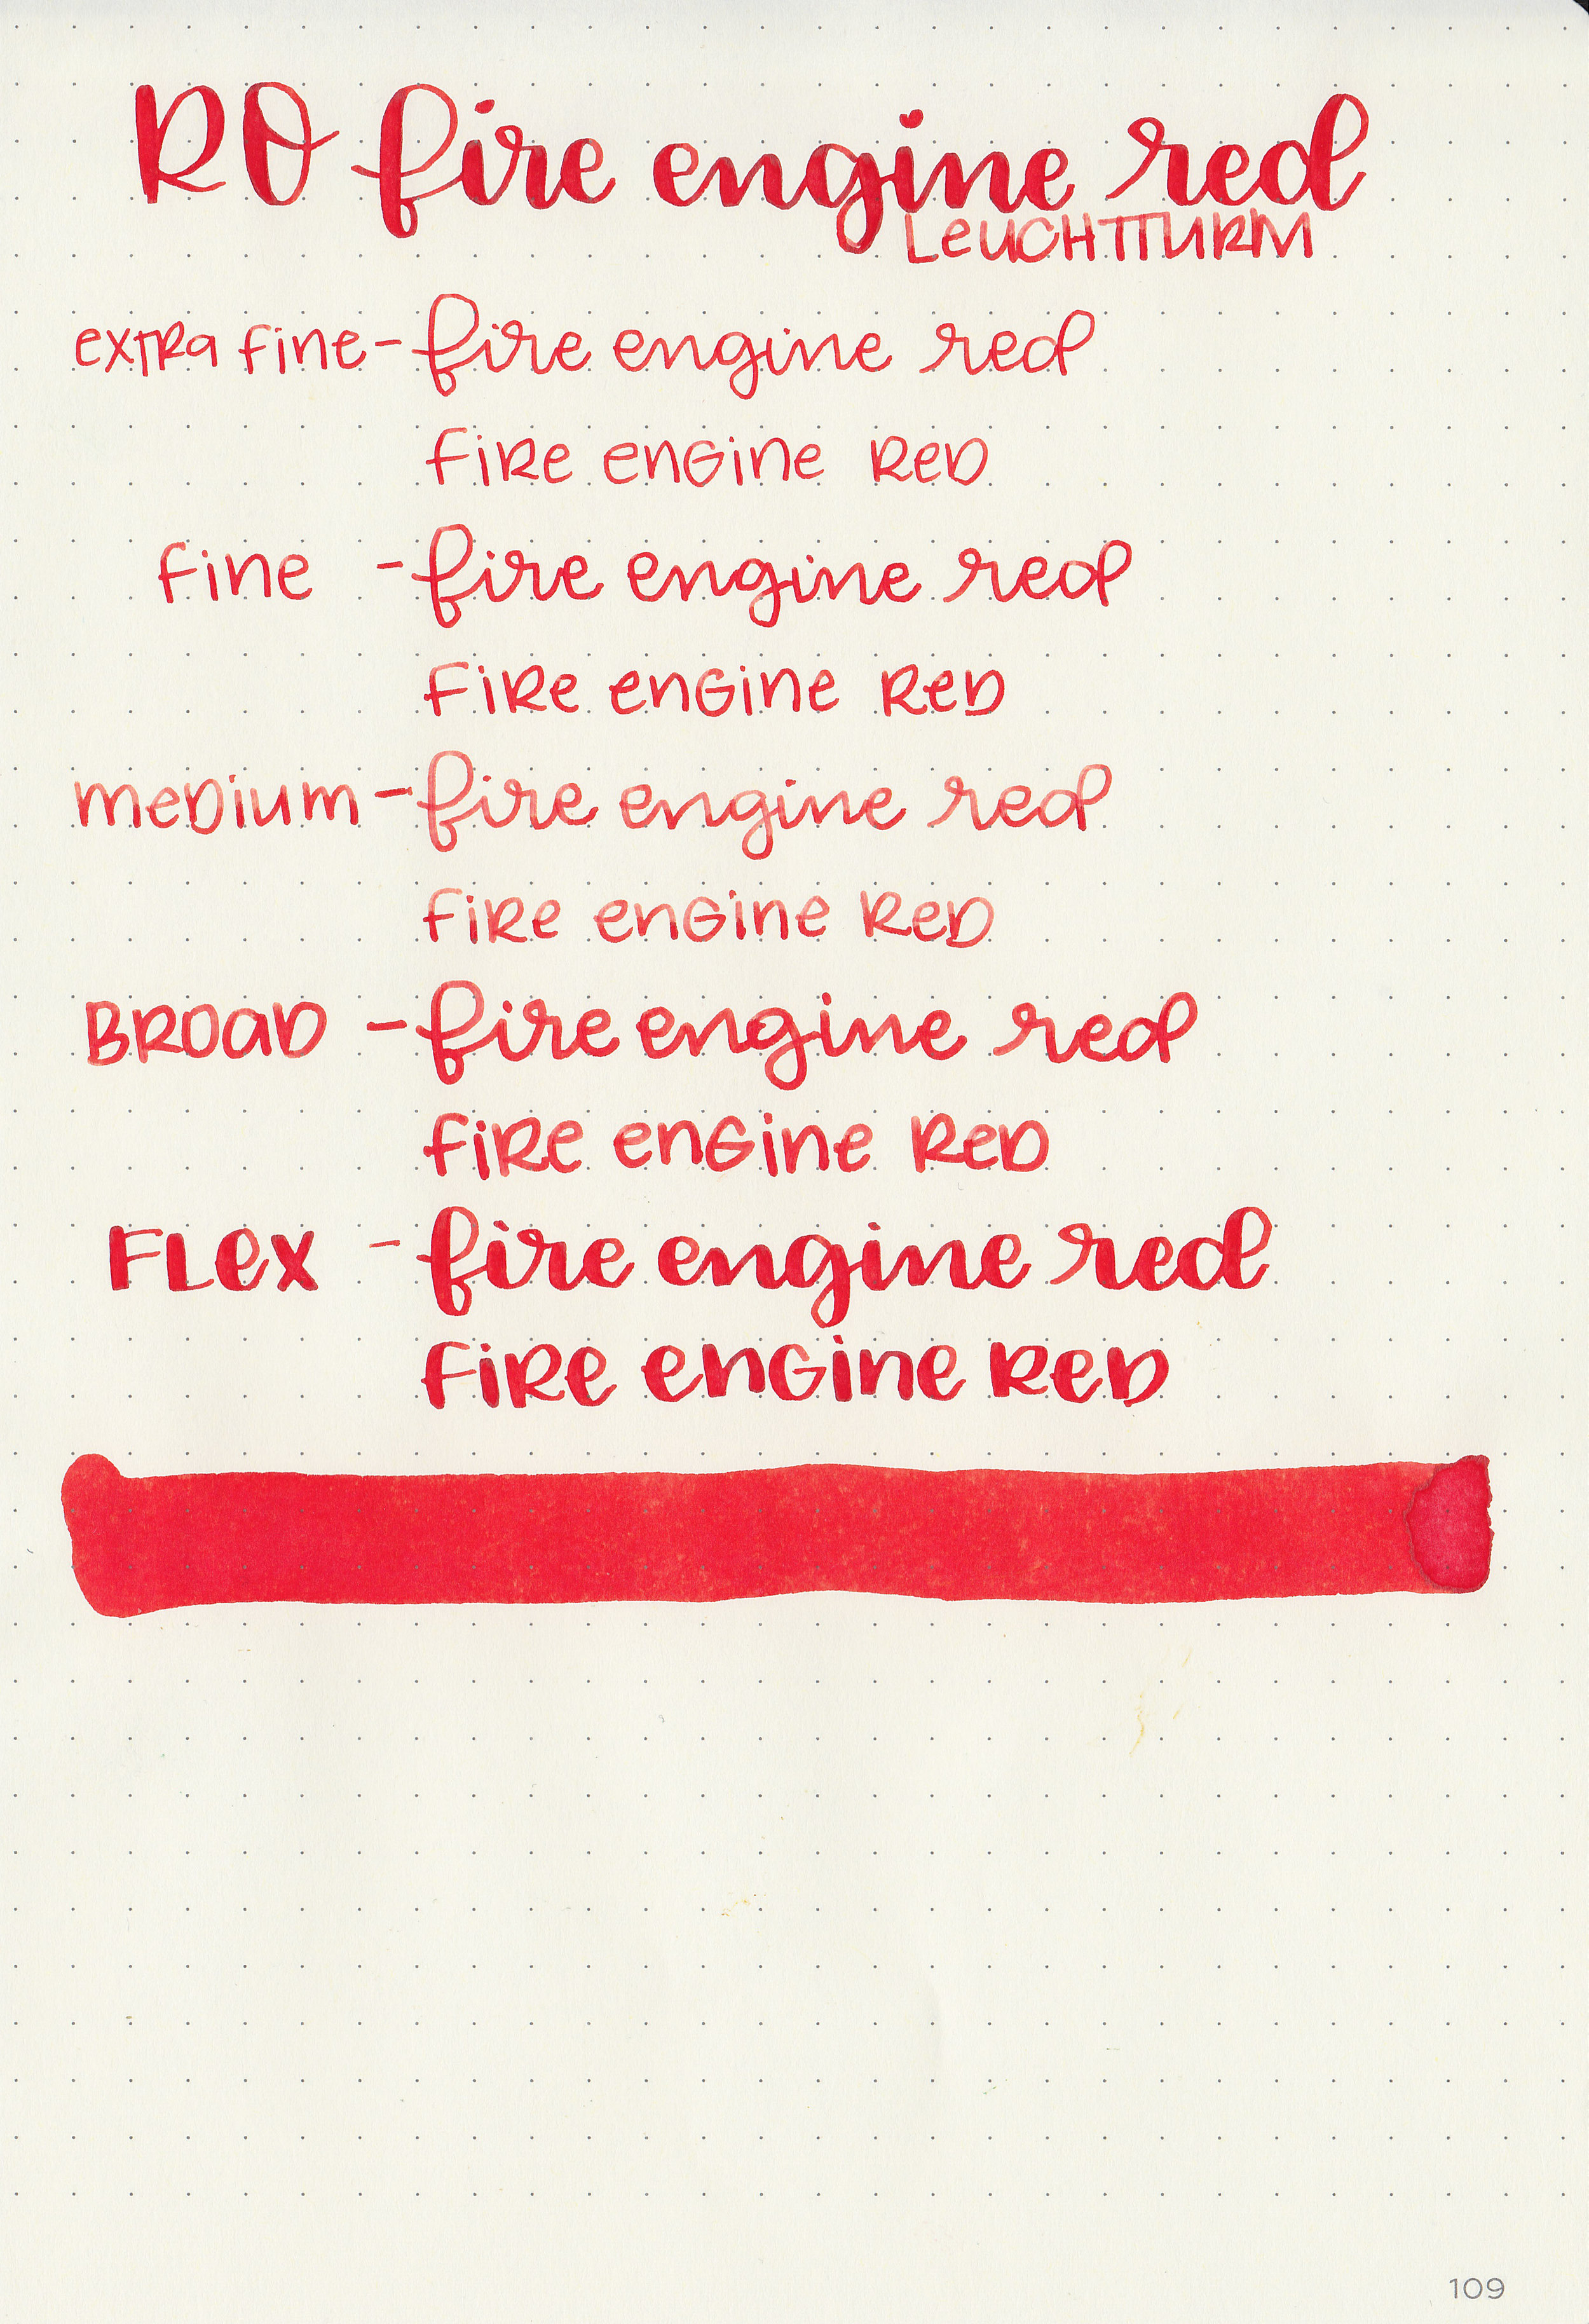 RO fire engine red
LeUCHTTURM
exTRa fine - fire engine red
fiRe enGine ReD
fine - fire engine red
fiRe enGine ReD
meDium - fire engine red
fiRe enGine ReD
BROaD - fire engine red
fiRe enGine ReD
FLex - fire engine red
fiRe enGine ReD
109